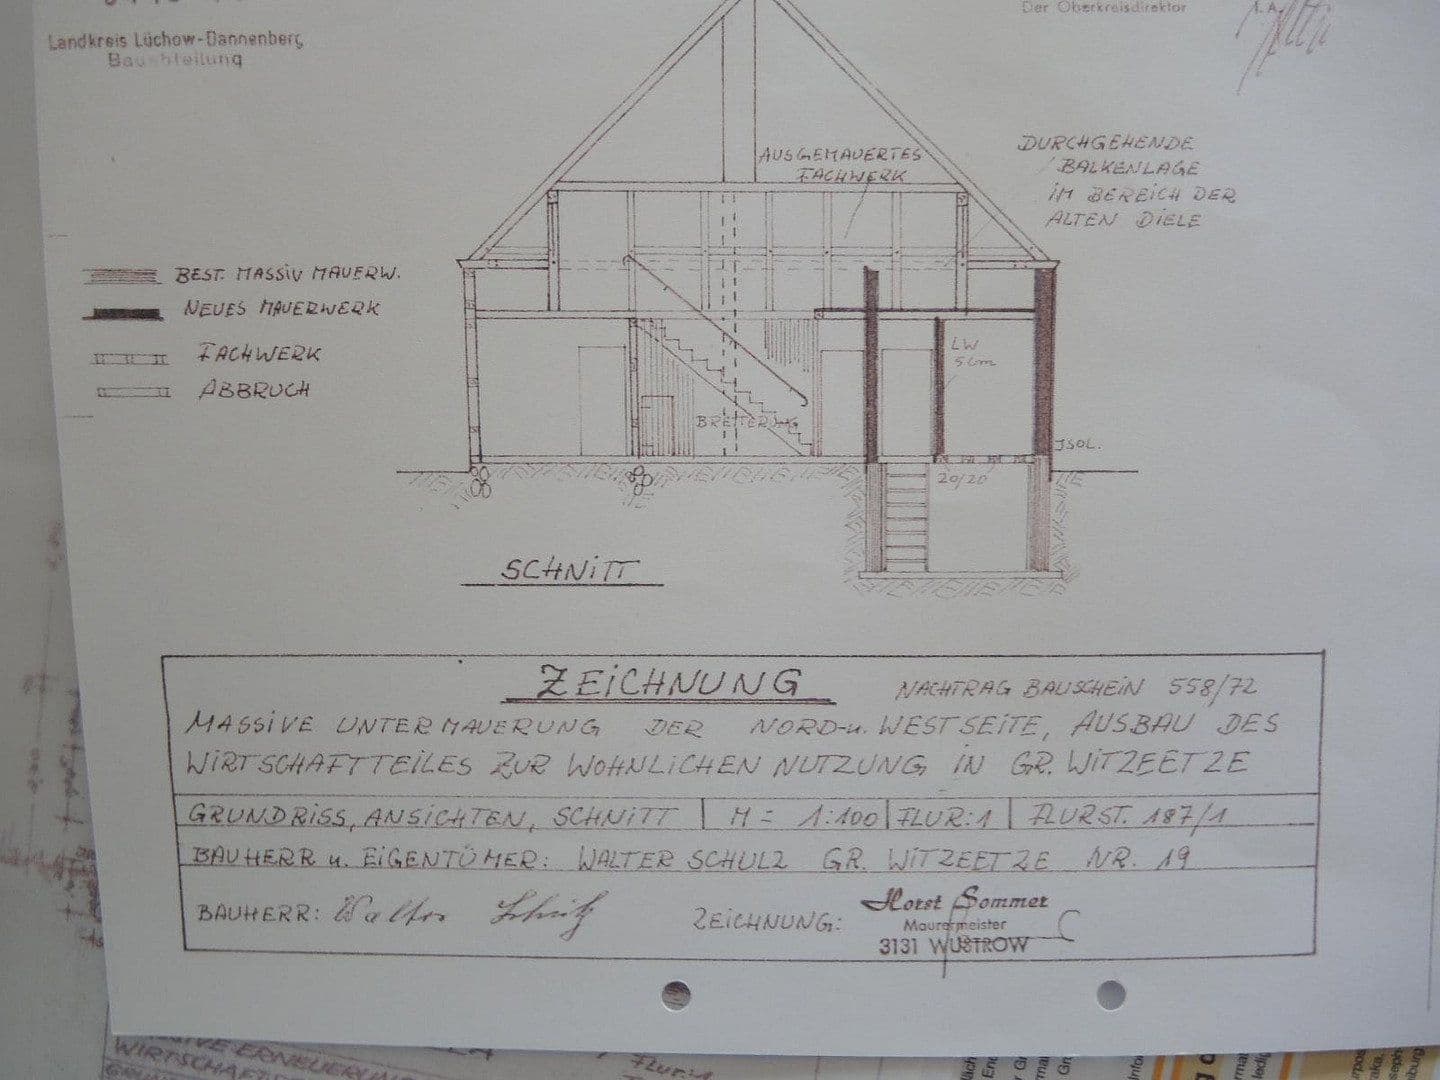 Landkreis Lüchow-Dannenberg
Bauabteilung
Der Oberkreisdirektor
I. A.
AUSGEMAUERTES
FACHWERK
DURCHGEHENDE
BALKENLAGE
IM BEREICH DER
ALTEN DIELE
BEST. MASSIV MAUERW.
NEUES MAUERWERK
FACHWERK
ABBRUCH
LW
5cm
BRETTERUNG
ISOL.
20/20
SCHNITT
ZEICHNUNG
NACHTRAG BAUSCHEIN 558/72
MASSIVE UNTERMAUERUNG DER NORD-u. WESTSEITE, AUSBAU DES
WIRTSCHAFTTEILES ZUR WOHNLICHEN NUTZUNG IN GR. WITZEETZE
GRUNDRISS, ANSICHTEN, SCHNITT M = 1:100 FLUR:1 FLURST. 187/1
BAUHERR u. EIGENTÜMER: WALTER SCHULZ GR. WITZEETZE NR. 19
BAUHERR: Walter Schulz
ZEICHNUNG: Horst Sommer
Maurermeister
3131 WUSTROW